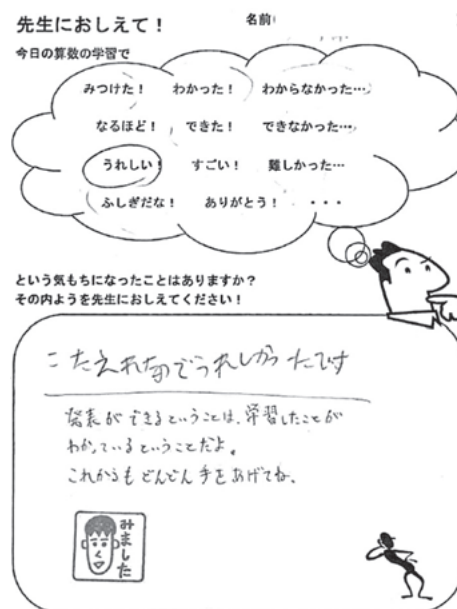 先生におしえて！
名前
今日の算数の学習で
みつけた！ わかった！ わからなかった…
なるほど！ できた！ できなかった…
うれしい！ すごい！ 難しかった…
ふしぎだな！ ありがとう！ ・・・
という気もちになったことはありますか？
その内ようを先生におしえてください！
こたえれたのでうれしかったです
発表ができるということは、学習したことが
わかっているということだよ。
これからもどんどん手をあげてね。
みました